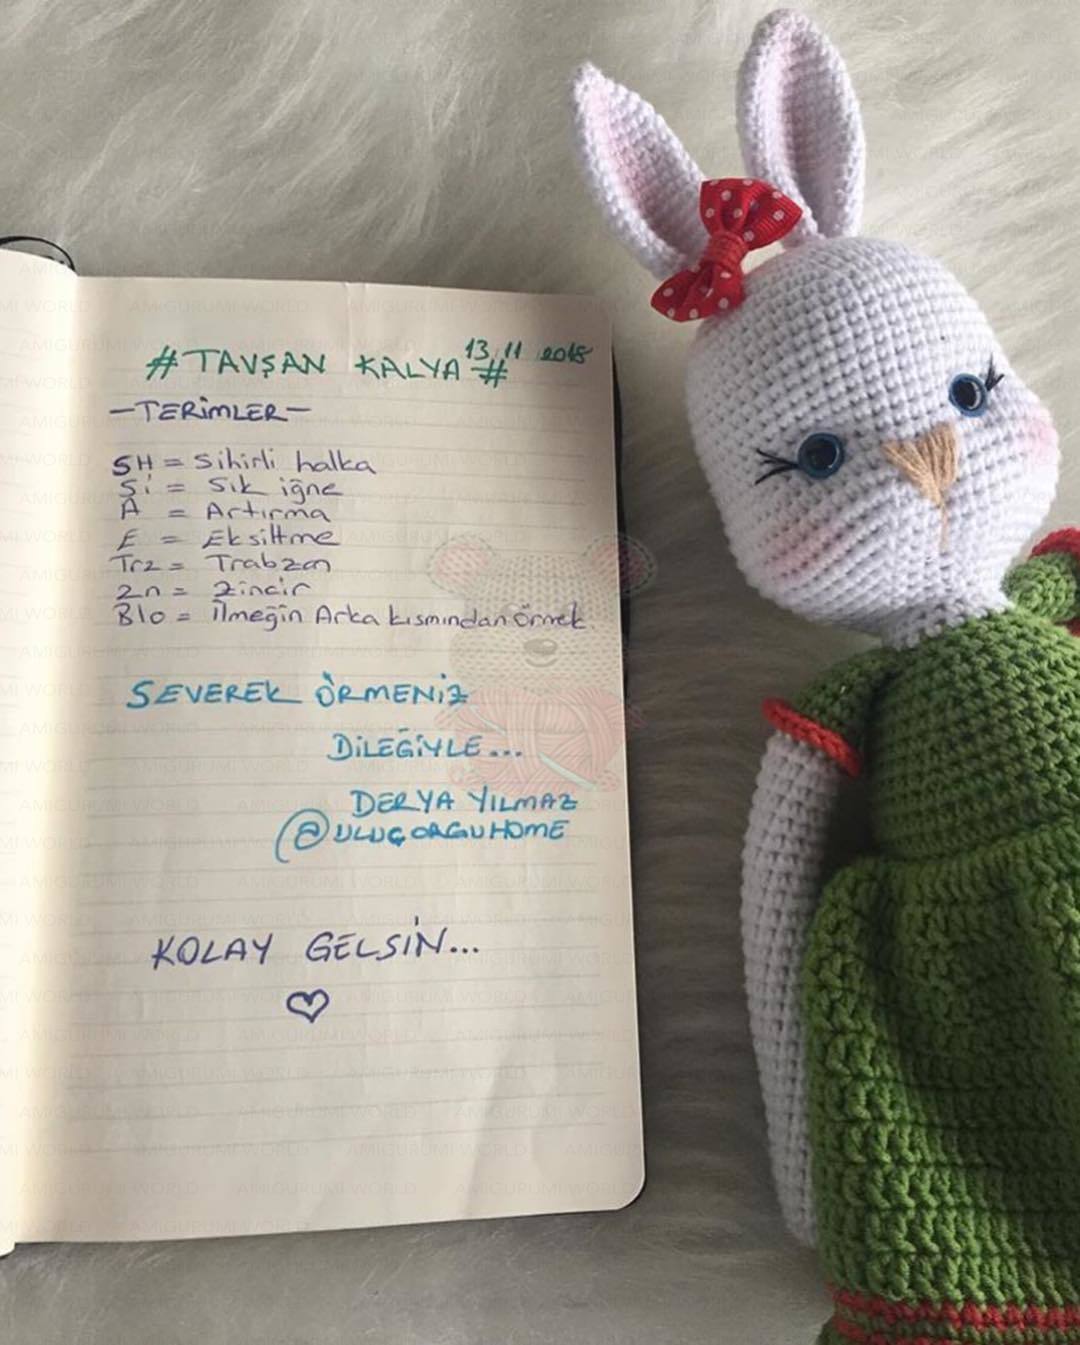 #TAVŞAN KALYA# 13.11.2018
-TERİMLER-
SH = Sihirli halka
Sİ = Sık iğne
A = Artırma
E = Eksiltme
Trz = Trabzan
Zn = Zincir
Blo = İlmeğin Arka kısmından örnek.
SEVEREK ÖRMENİZ
DİLEĞİYLE...
DERYA YILMAZ
@ULUÇORGUHOME
KOLAY GELSİN...